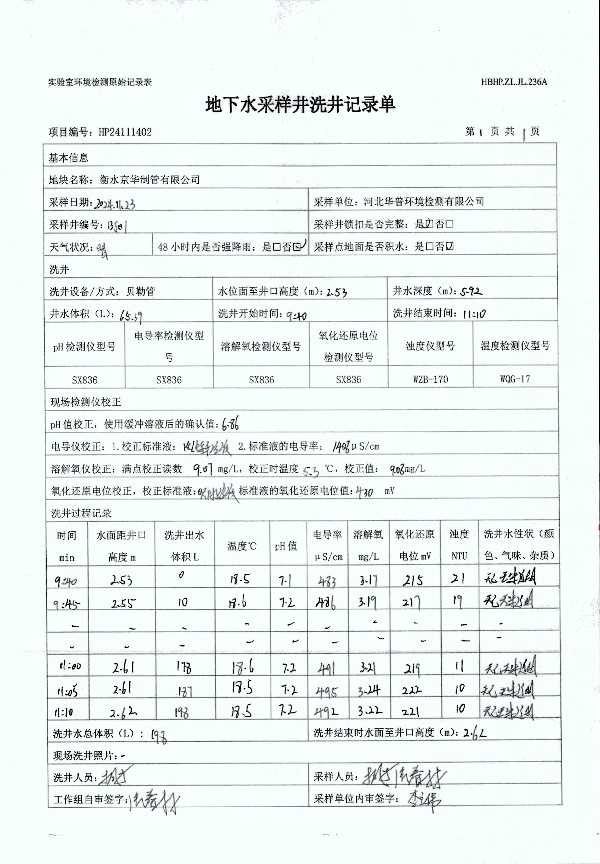 实验室环境检测原始记录表 HBHP.ZL.JL.236A
地下水采样井洗井记录单
项目编号：HP24111402 第1页 共1页
基本信息
地块名称：衡水京华制管有限公司
采样日期：2024.11.23 采样单位：河北华普环境检测有限公司
采样井编号： 采样井锁扣是否完整：是☑否□
天气状况： 48小时内是否强降雨：是□否☑ 采样点地面是否积水：是□否☑
洗井
洗井设备/方式：贝勒管 水位面至井口高度（m）：2.53 井水深度（m）：5.92
井水体积（L）：65.39 洗井开始时间：9:40 洗井结束时间：11:10
pH检测仪型号 电导率检测仪型号 溶解氧检测仪型号 氧化还原电位检测仪型号 浊度仪型号 温度检测仪型号
SX836 SX836 SX836 SX836 WZB-170 WQG-17
现场检测仪校正
pH值校正，使用缓冲溶液后的确认值：6.86
电导仪校正：1.校正标准液： 2.标准液的电导率：1408μS/cm
溶解氧仪校正：满点校正读数 9.07 mg/L，校正时温度 5.3 ℃，校正值：9.08mg/L
氧化还原电位校正，校正标准液： 标准液的氧化还原电位值：430 mV
洗井过程记录
时间min 水面距井口高度m 洗井出水体积L 温度℃ pH值 电导率μS/cm 溶解氧mg/L 氧化还原电位mV 浊度NTU 洗井水性状（颜色、气味、杂质）
9:40 2.53 0 18.5 7.1 483 3.17 215 21
9:45 2.55 10 18.6 7.2 486 3.19 217 19
- - - - - - - - - -
- - - - - - - - - -
11:00 2.61 178 18.6 7.2 491 3.21 219 11
11:05 2.61 187 18.5 7.2 495 3.24 222 10
11:10 2.62 198 18.5 7.2 492 3.22 221 10
洗井水总体积（L）：198 洗井结束时水面至井口高度（m）：2.62
现场洗井照片：-
洗井人员： 采样人员：
工作组自审签字： 采样单位内审签字：